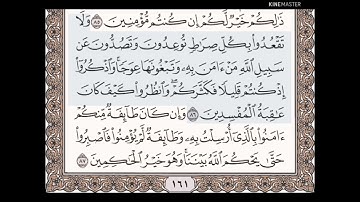 KINEMASTER
ذَٰلِكُمْ خَيْرٌ لَّكُمْ إِن كُنتُم مُّؤْمِنِينَ ٨٥ وَلَا
تَقْعُدُوا۟ بِكُلِّ صِرَٰطٍ تُوعِدُونَ وَتَصُدُّونَ عَن
سَبِيلِ ٱللَّهِ مَنْ ءَامَنَ بِهِۦ وَتَبْغُونَهَا عِوَجًا ۚ وَٱذْكُرُوٓا۟
إِذْ كُنتُمْ قَلِيلًا فَكَثَّرَكُمْ ۖ وَٱنظُرُوا۟ كَيْفَ كَانَ
عَٰقِبَةُ ٱلْمُفْسِدِينَ ٨٦ وَإِن كَانَ طَآئِفَةٌ مِّنكُمْ
ءَامَنُوا۟ بِٱلَّذِىٓ أُرْسِلْتُ بِهِۦ وَطَآئِفَةٌ لَّمْ يُؤْمِنُوا۟ فَٱصْبِرُوا۟
حَتَّىٰ يَحْكُمَ ٱللَّهُ بَيْنَنَا ۚ وَهُوَ خَيْرُ ٱلْحَٰكِمِينَ ٨٧
١٦١